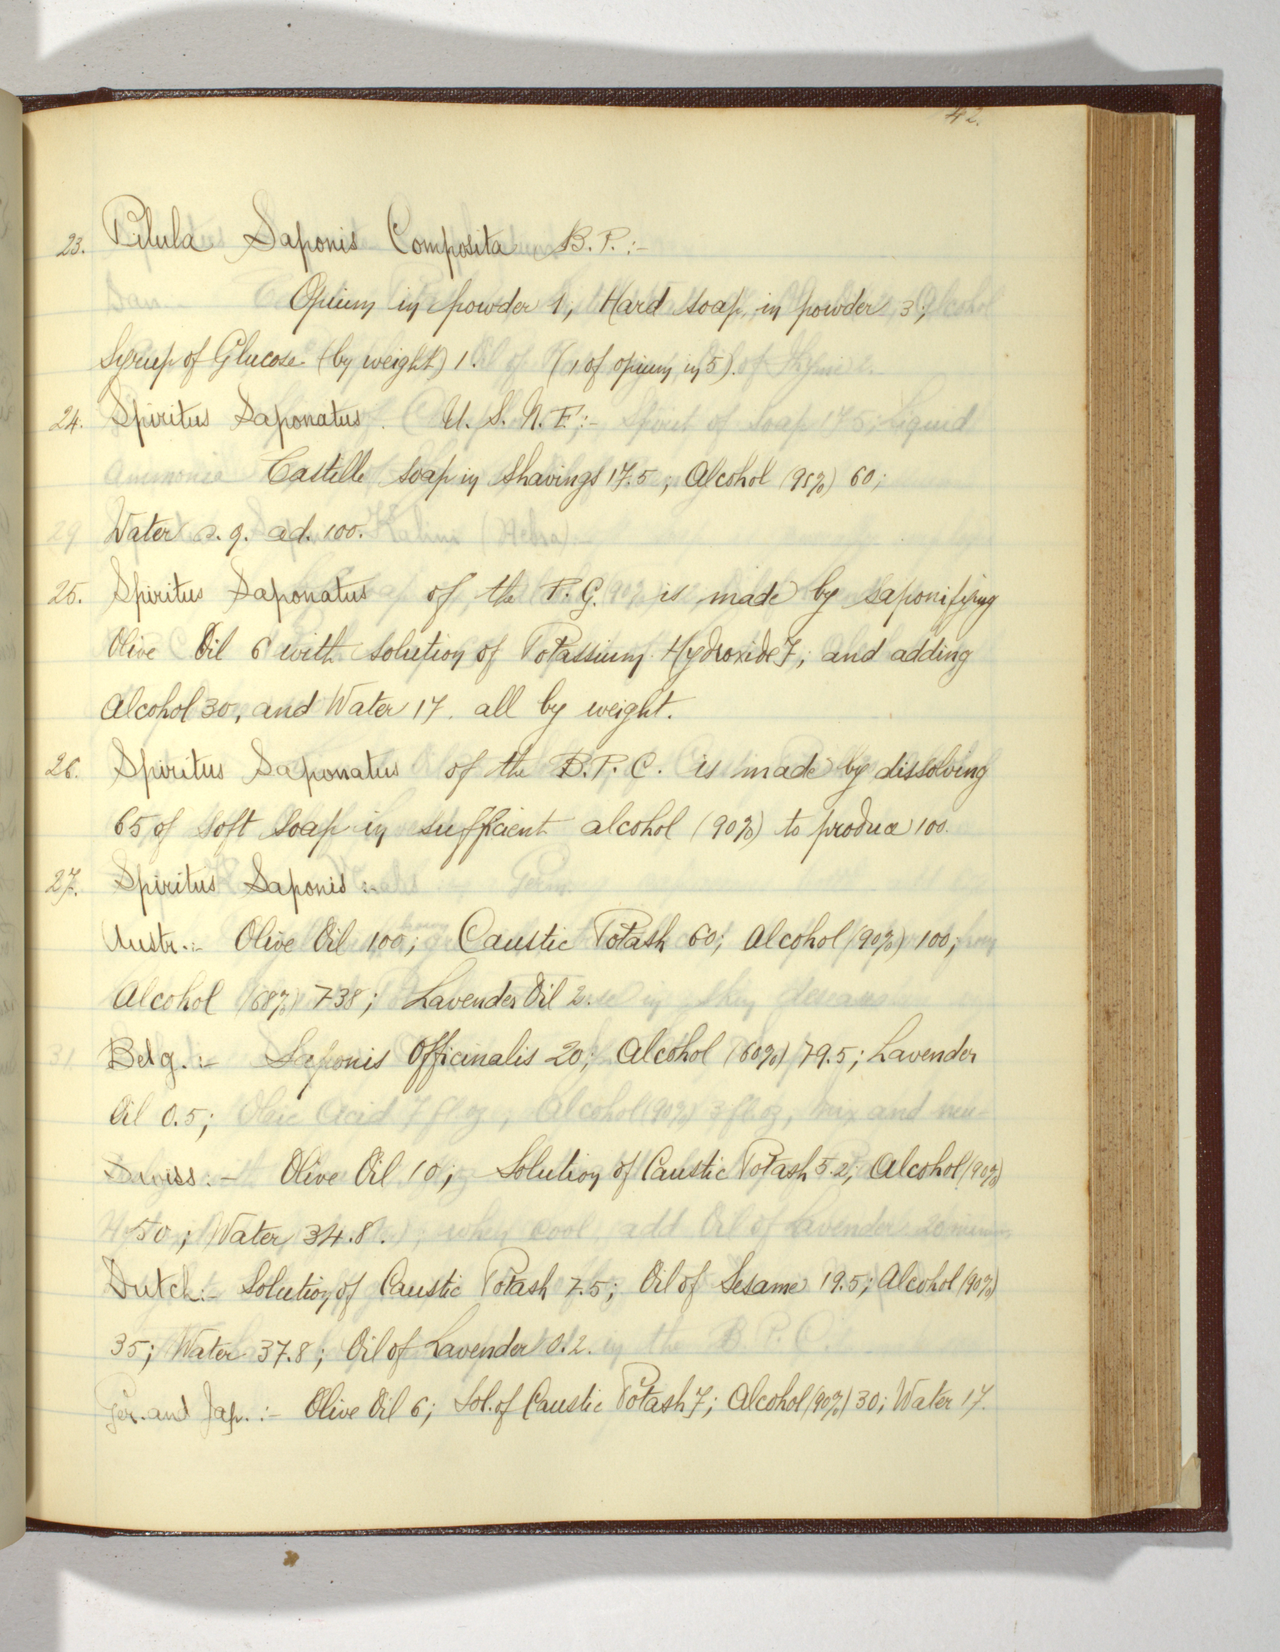 42.
23. Pilula Saponis Composita B.P.:-
Opium in powder 1, Hard soap in powder 3;
Syrup of Glucose (by weight) 1. (1 of opium in 5).
24. Spiritus Saponatus. U.S.N.F:-
Castille soap in shavings 17.5; Alcohol (95%) 60;
Water q.s. ad. 100.
25. Spiritus Saponatus of the P.G. is made by saponifying
Olive Oil 6 with solution of Potassium Hydroxide 7; and adding
Alcohol 30, and Water 17. all by weight.
26. Spiritus Saponatus of the B.P.C. is made by dissolving
65 of soft soap in sufficient alcohol (90%) to produce 100.
27. Spiritus Saponis:-
Austr.:- Olive Oil 100; Caustic Potash 60; Alcohol (90%) 100;
Alcohol (68%) 738; Lavender Oil 2.
Belg.:- Saponis Officinalis 20; Alcohol (60%) 79.5; Lavender
Oil 0.5;
Swiss:- Olive Oil 10; Solution of Caustic Potash 5.2; Alcohol (90%)
50; Water 34.8.
Dutch:- Solution of Caustic Potash 7.5; Oil of Sesame 19.5; Alcohol (90%)
35; Water 37.8; Oil of Lavender 0.2.
Ger. and Jap.:- Olive Oil 6; Sol. of Caustic Potash 7; Alcohol (90%) 30; Water 17.